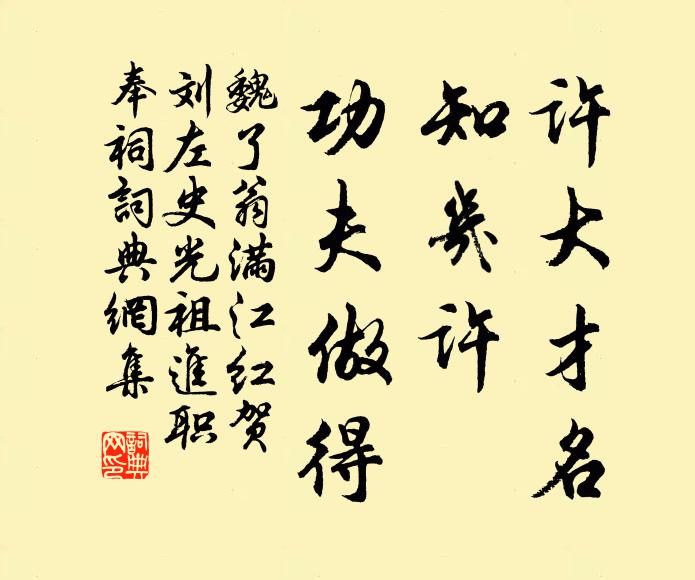 许大才名
知幾许
功夫做得
魏了翁满江红贺
刘左史光祖進职
奉祠詞典網集
詞典
网印